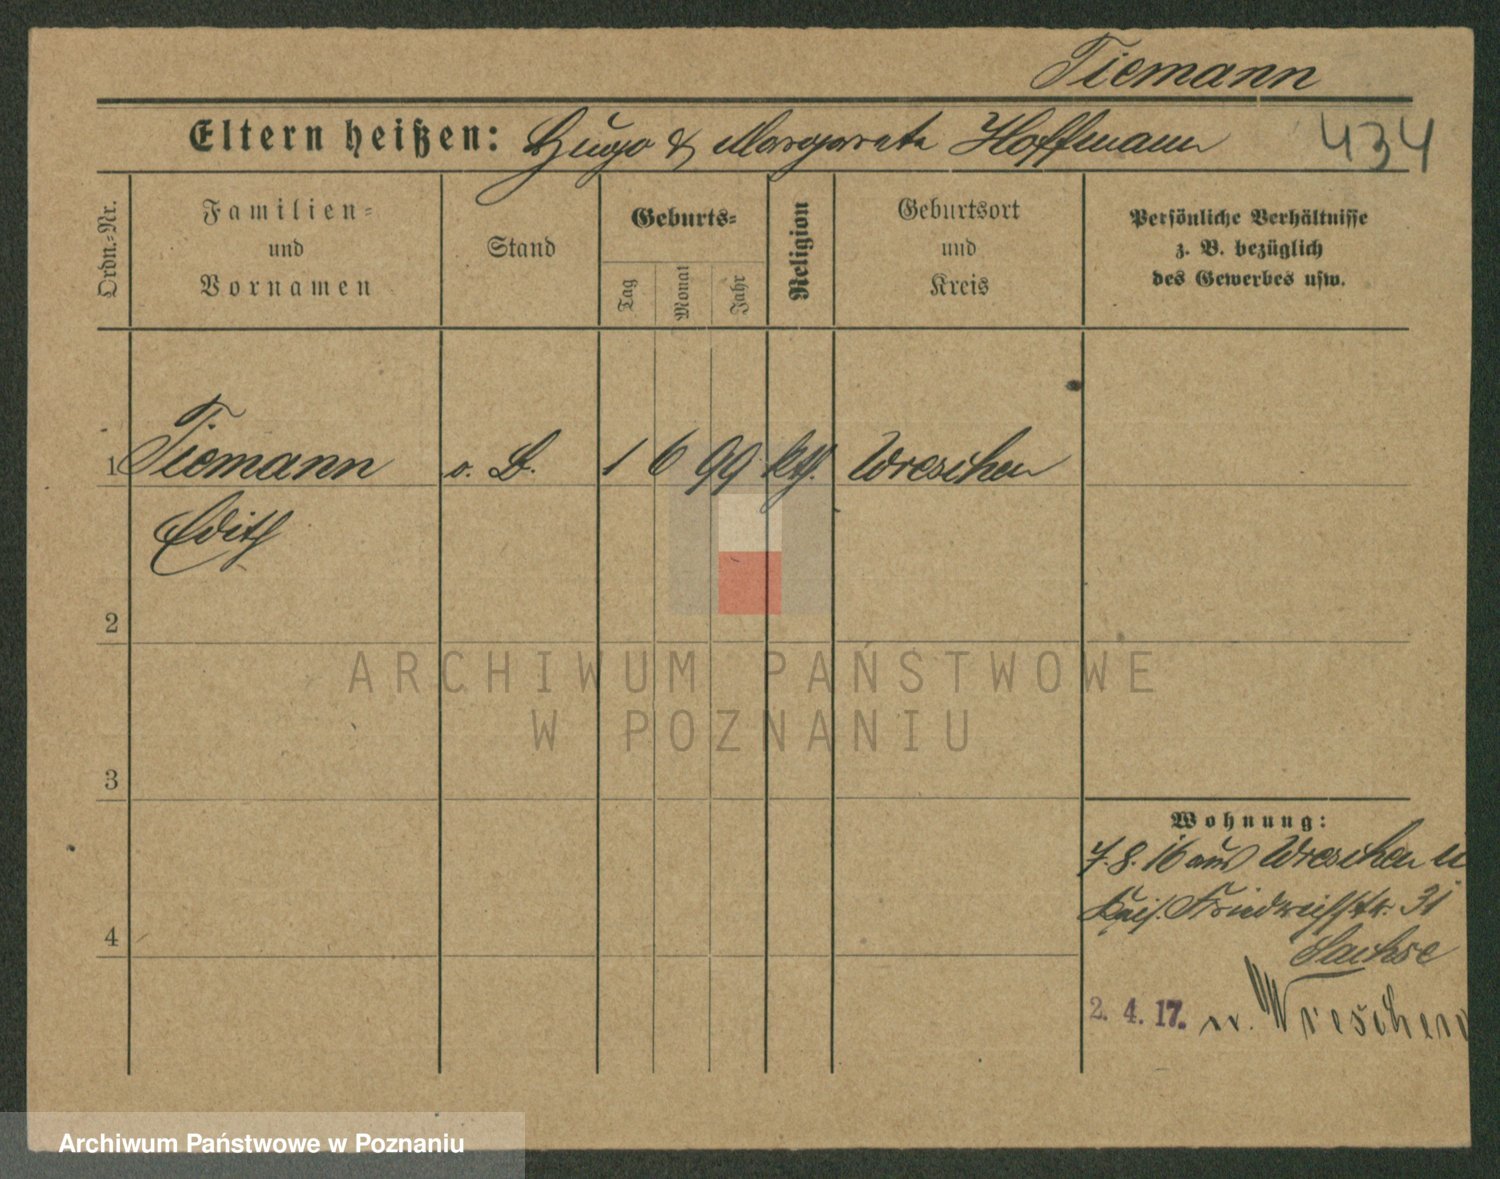 Tiemann
Eltern heißen: Hugo & Margarete Hoffmann 434
Ordn.-Nr.
Familien-
und
Vornamen
Stand
Geburts-
Tag
Monat
Jahr
Religion
Geburtsort
und
Kreis
Persönliche Verhältnisse
z. B. bezüglich
des Gewerbes usw.
1 Tiemann o. B. 1 6 99 kth. Wreschen
Edith
2
3
4
Wohnung:
7. 8. 16 aus Wreschen
Kais. Friedrichstr. 31
Sachse
2. 4. 17. n. Wreschen
ARCHIWUM PAŃSTWOWE
W POZNANIU
Archiwum Państwowe w Poznaniu